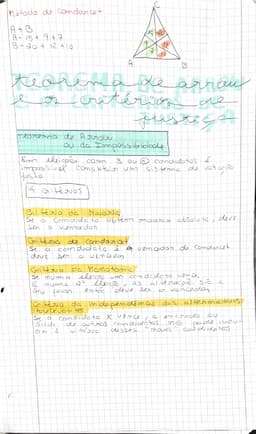 Método de Condorcet
A + B
A - 15 + 9 + 7
B - 20 + 12 + 10
C
A
B
teorema de arrow
e os critérios de
justiça
teorema de Arrow
ou da Impossibilidade
Em eleições com 3 ou + candidatos é
impossível construir um sistema de votação
justo.
4 critérios
Critério da Maioria
Se o candidato obtem maioria absoluta, deve
ser o vencedor
Critério de Condorcet
Se o candidato é vencedor de Condorcet
deve ser o vencedor
Critério da Monotonia
Se numa eleição um candidato vence,
e numa 2ª eleição, as alterações são a
seu favor então deve ser o vencedor
Critério da independência das alternativas
irrelevantes
Se o candidato X vence, a entrada ou
saída de outros candidatos não pode
a vitória desses "novos" candidatos